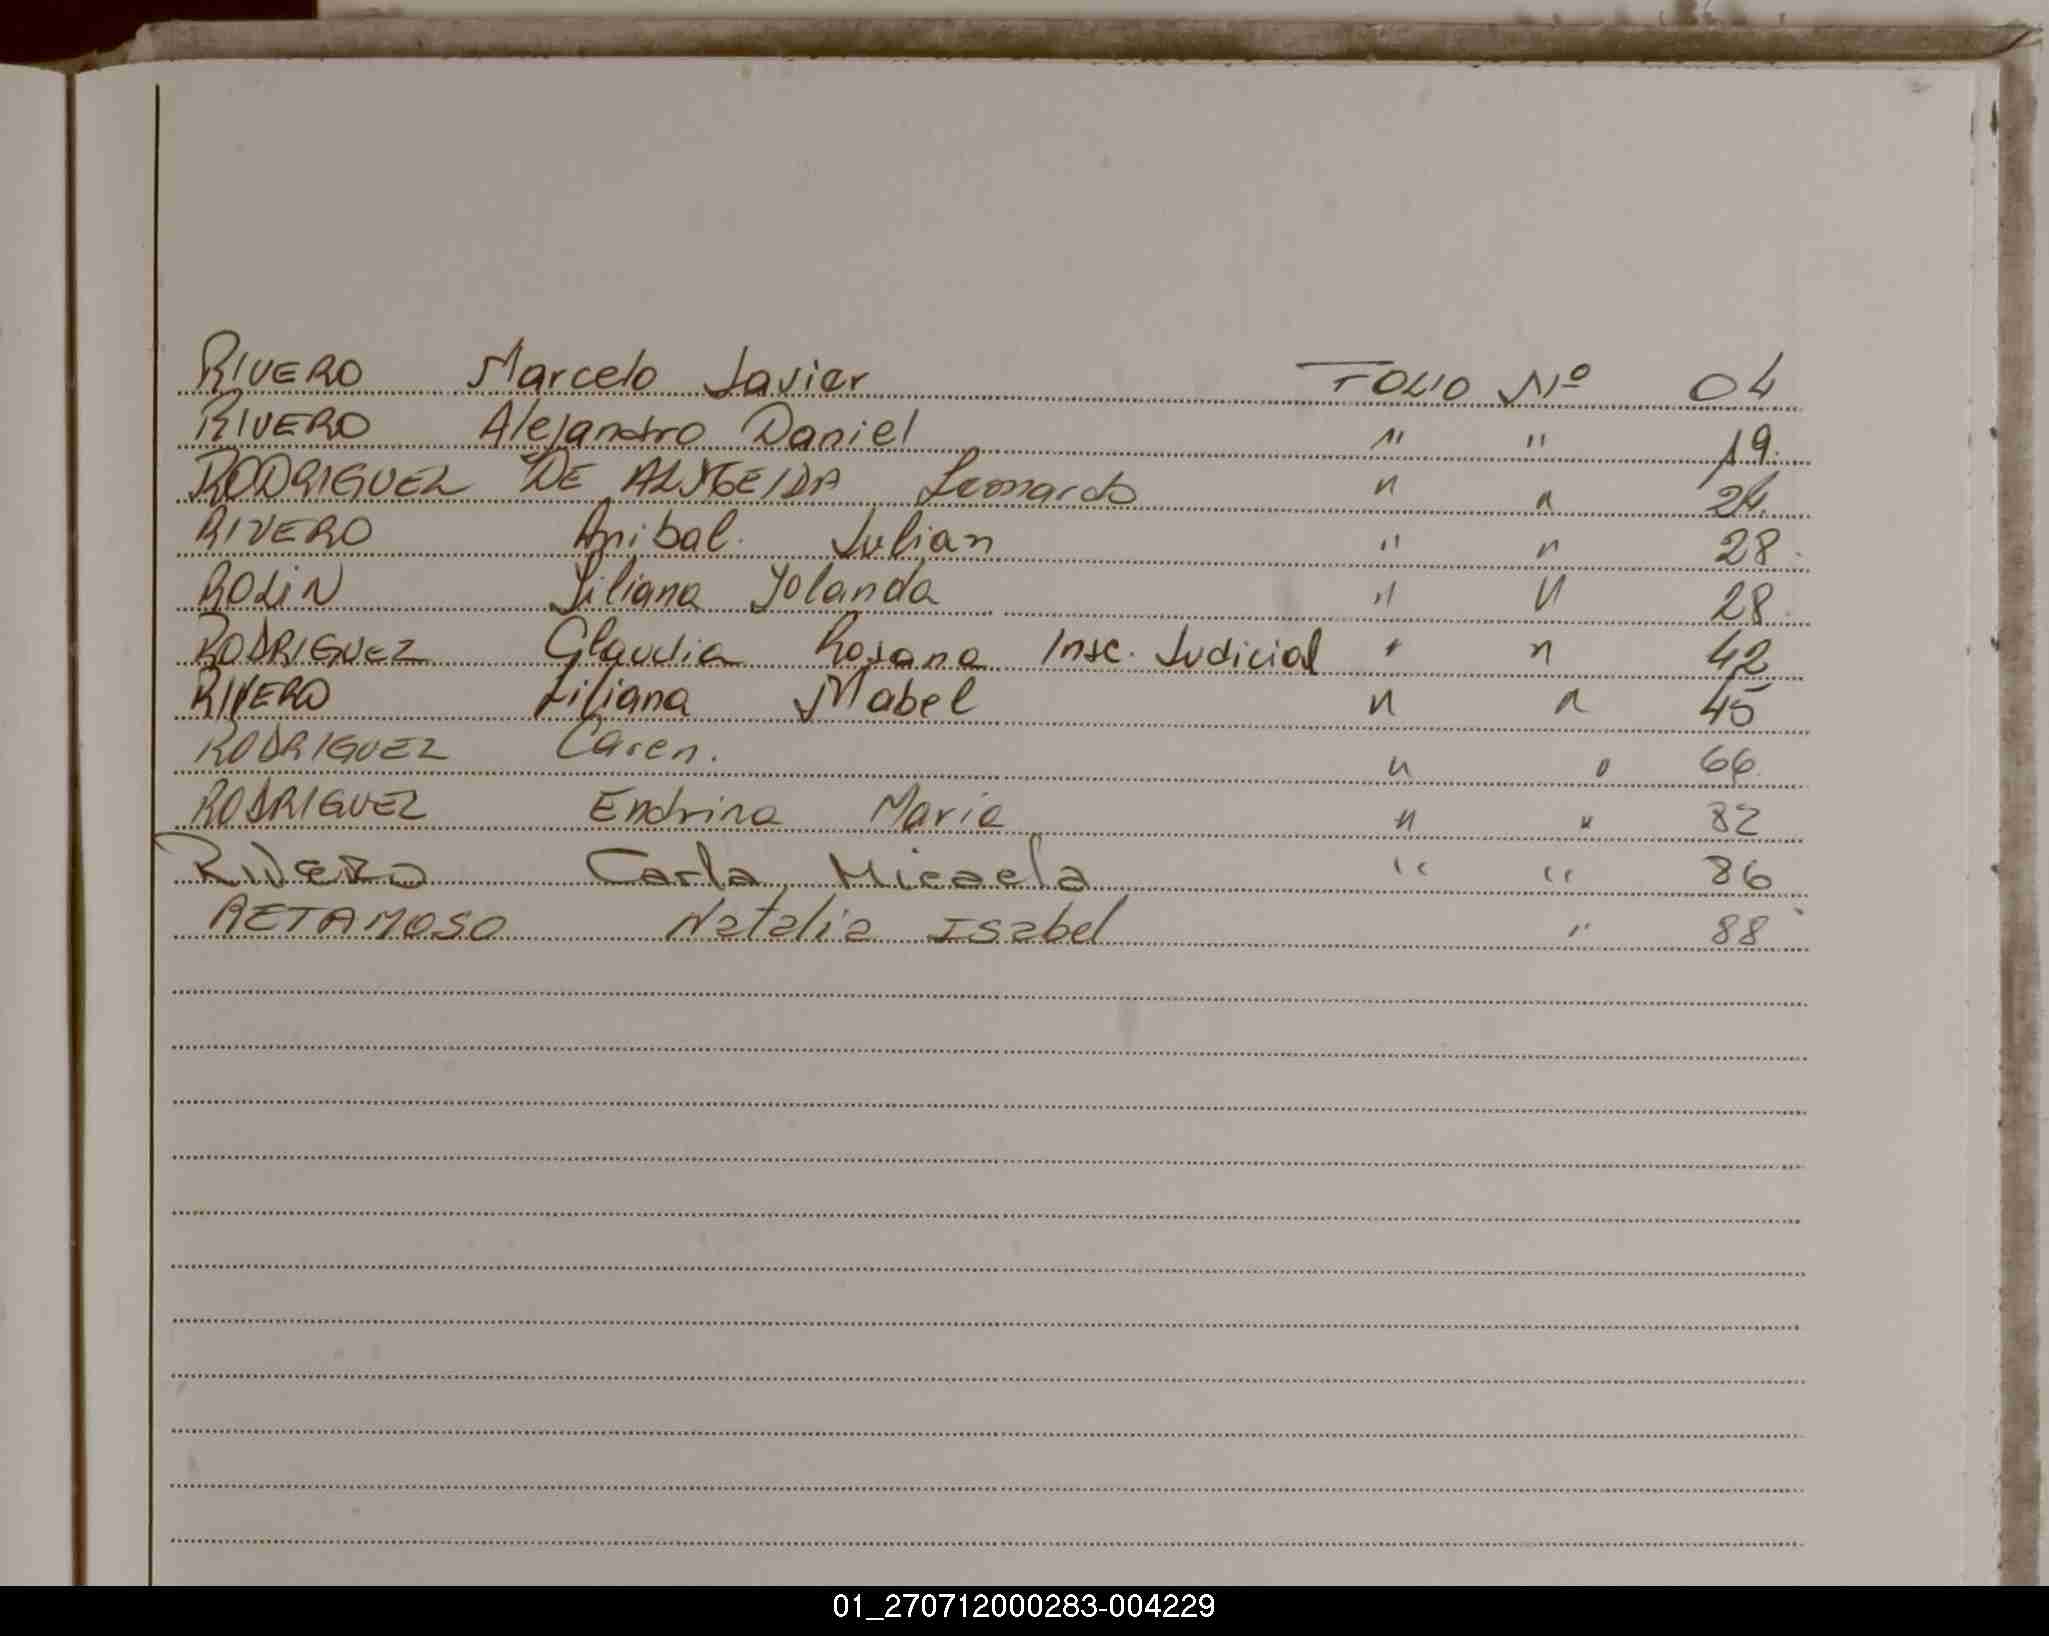 RIVERO Marcelo Javier FOLIO Nº 04
RIVERO Alejandro Daniel " " 19.
RODRIGUEZ DE ALMEIDA Leonardo " " 24.
RIVERO Anibal. Julian " " 28.
ROLIN Liliana Yolanda " " 28.
RODRIGUEZ Claudia Rosana Insc. Judicial " " 42
RIVERO Liliana Mabel " " 45
RODRIGUEZ Caren. " " 66.
RODRIGUEZ Endrina Maria " " 82
RIVERO Carla Micaela " " 86
RETAMOSO Natalia Isabel " 88
01_270712000283-004229